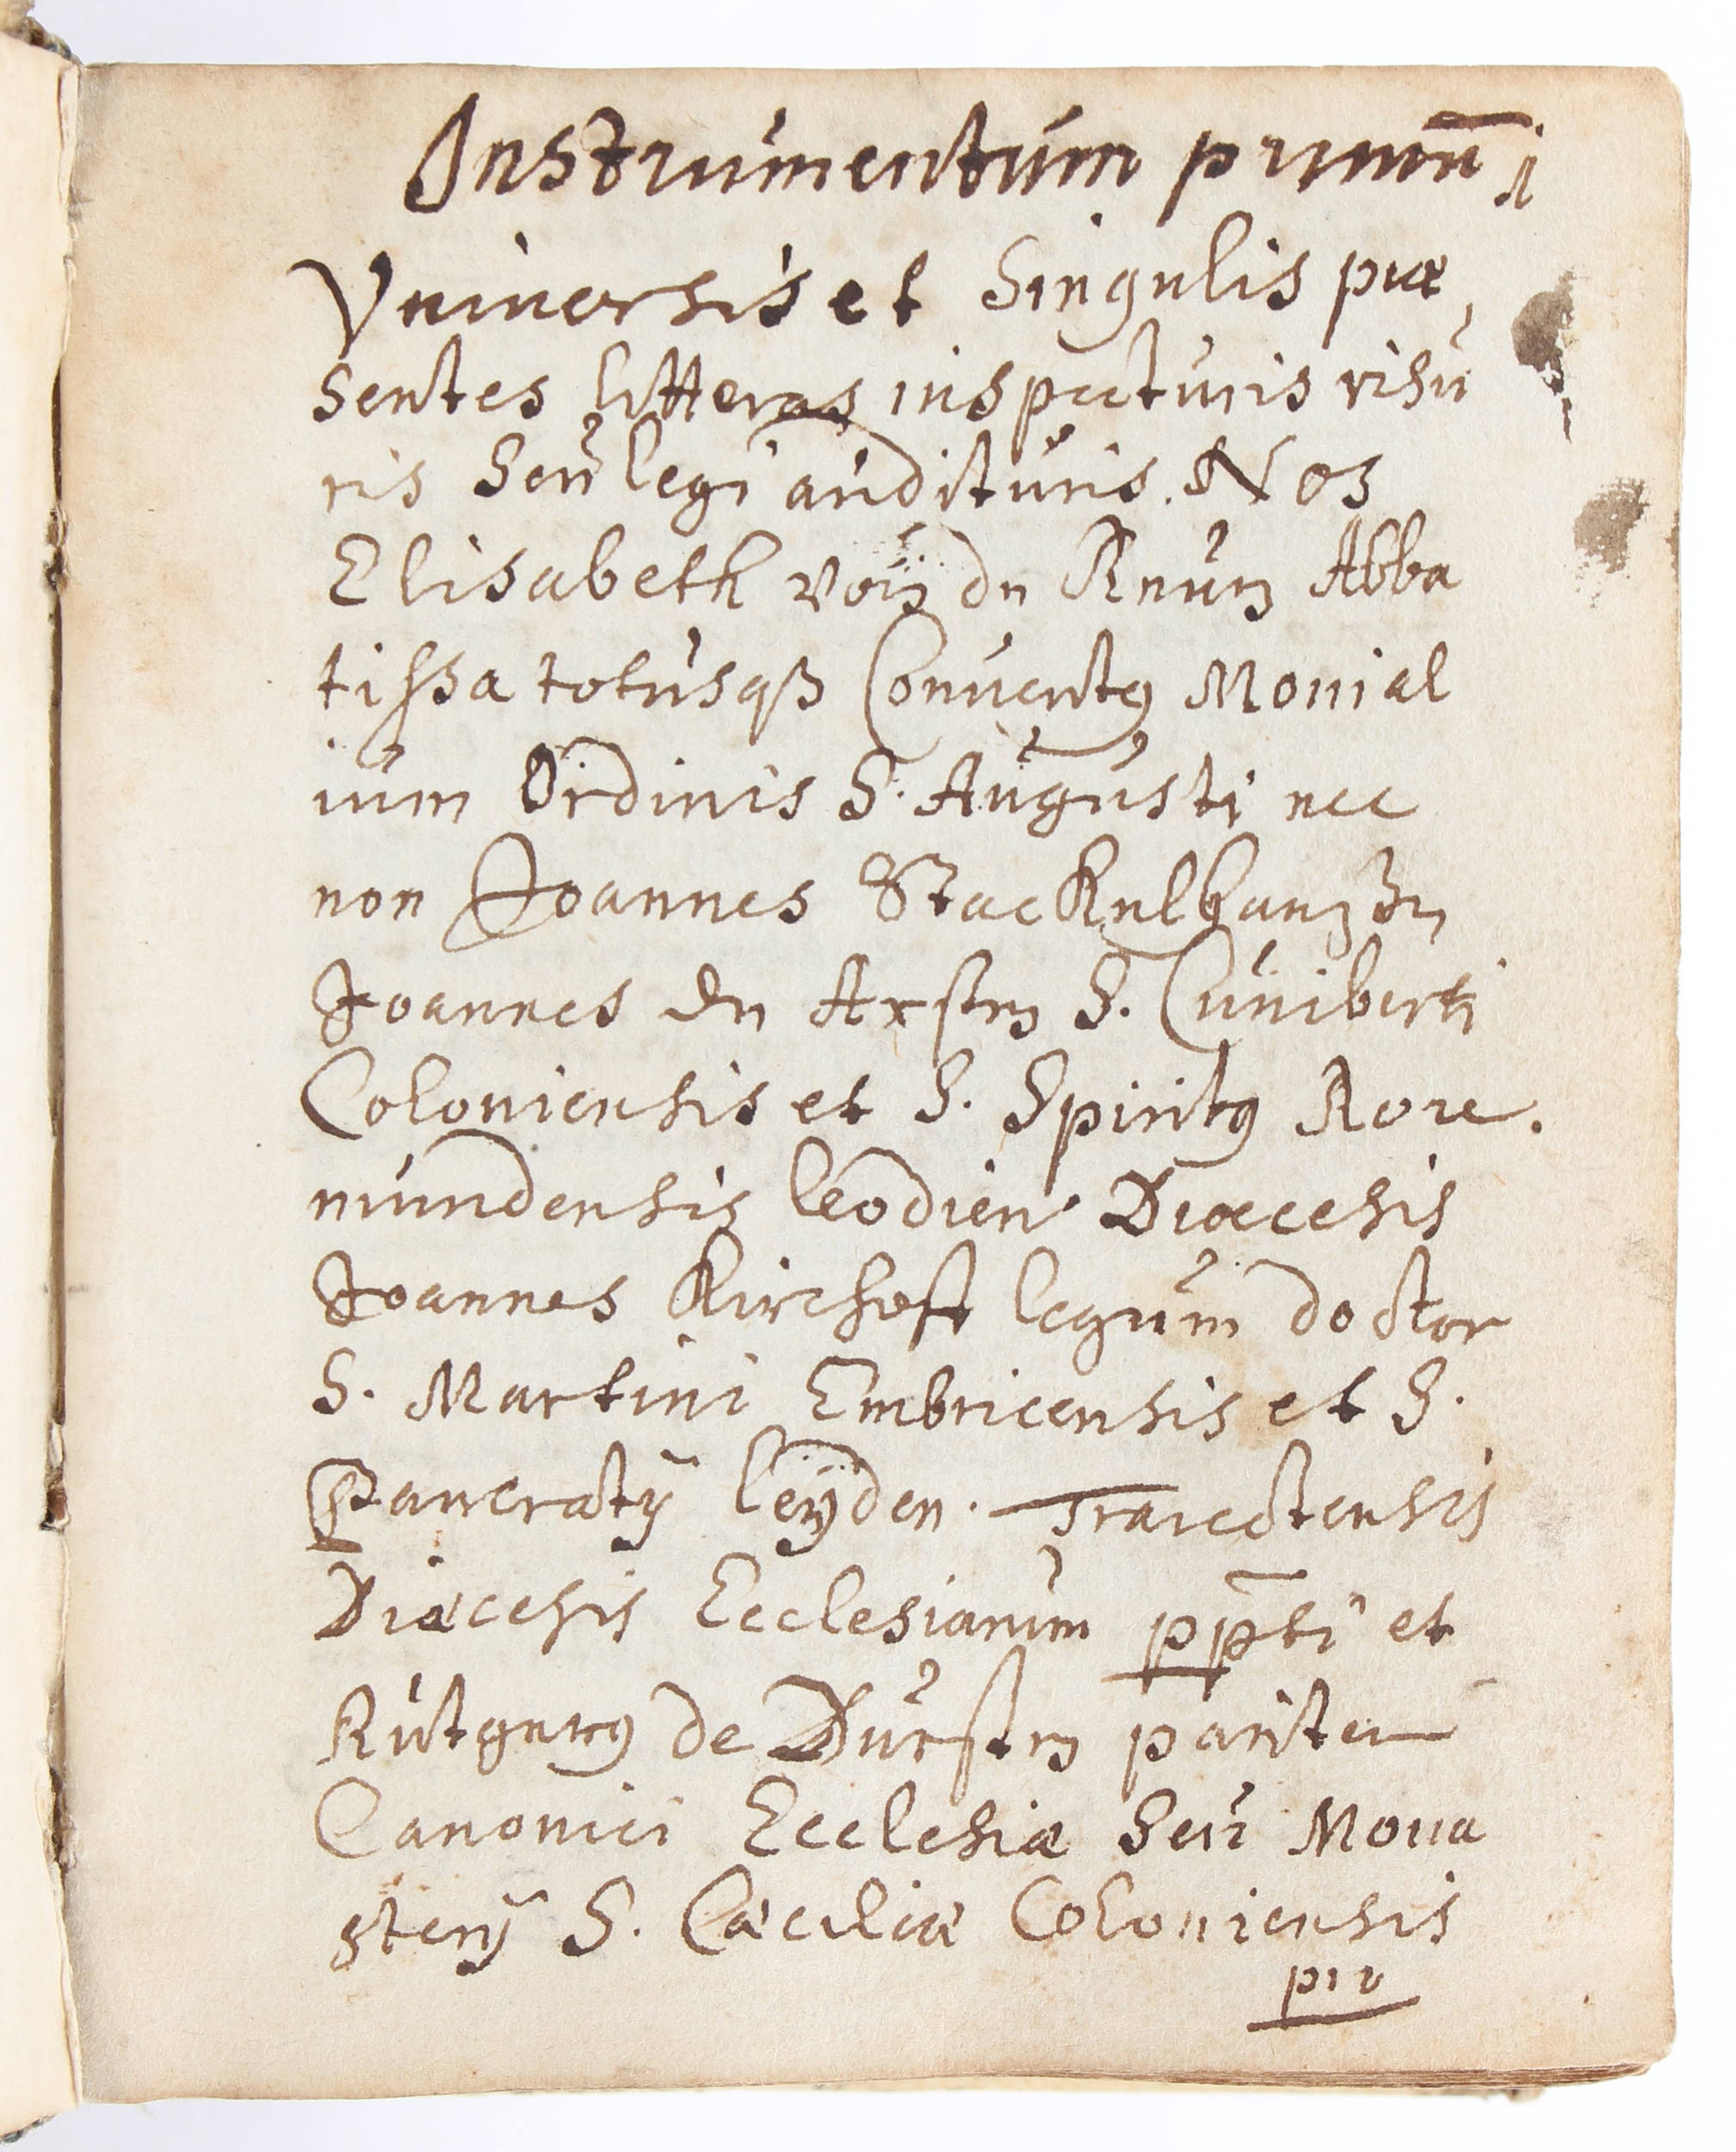 Instrumentum primū 1
Vniuersis et Singulis præ,
sentes litteras inspecturis visu
ris Seu legi audituris. Nos
Elisabeth von der Reuen Abba
tissa totusqȝ Conuentꝰ Monial
ium Ordinis S. Augusti nec
non Joannes Stackelhausen
Joannes de Arsten S. Cuniberti
Coloniensis et S. Spiritꝰ Rore.
mundensis leodien. Diæcesis
Joannes Kirchoff legum doctor
S. Martini Embricensis et S.
Pancratÿ leÿden. Traiectensis
Diæcesis Ecclesiarum pp̄ti et
Rutgerꝰ de Dursten pariter
Canonici Ecclesiæ Seu Mona
sterÿ S. Cæciliæ Coloniensis